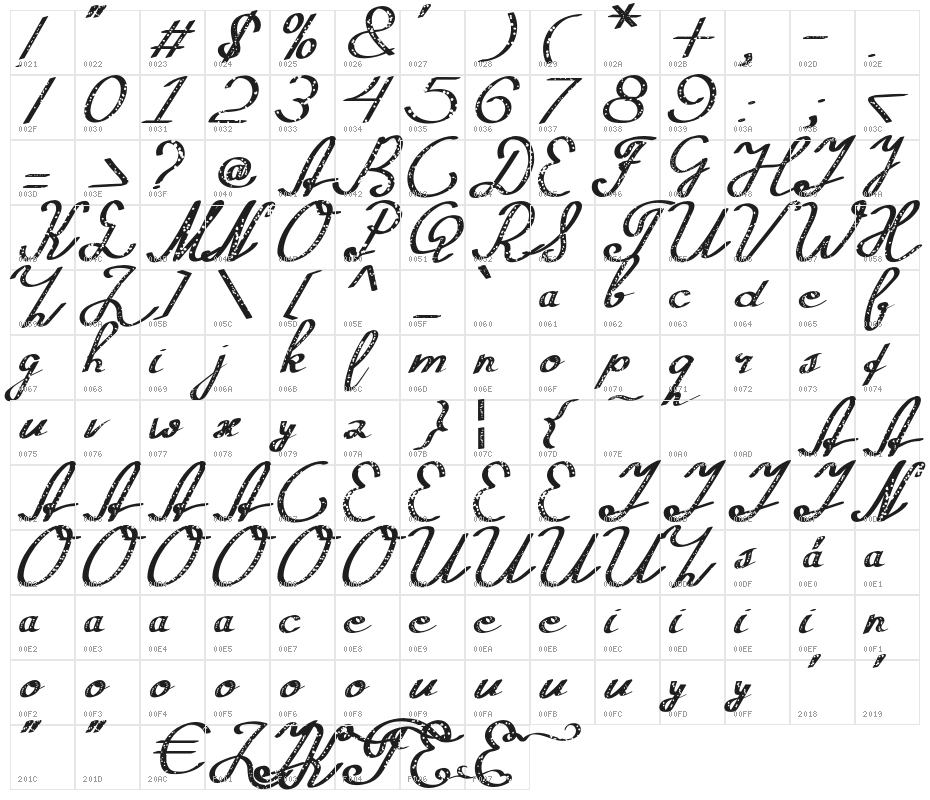 ! " # $ % & ' ) ( * + , - .
0021 0022 0023 0024 0025 0026 0027 0028 0029 002A 002B 002C 002D 002E
/ 0 1 2 3 4 5 6 7 8 9 : ; <
002F 0030 0031 0032 0033 0034 0035 0036 0037 0038 0039 003A 003B 003C
= > ? @ A B C D E F G H I J
003D 003E 003F 0040 0041 0042 0043 0044 0045 0046 0047 0048 0049 004A
K L M N O P Q R S T U V W X
004B 004C 004D 004E 004F 0050 0051 0052 0053 0054 0055 0056 0057 0058
Y Z ] \ [ ^ _ ` a b c d e f
0059 005A 005B 005C 005D 005E 005F 0060 0061 0062 0063 0064 0065 0066
g h i j k l m n o p q r s t
0067 0068 0069 006A 006B 006C 006D 006E 006F 0070 0071 0072 0073 0074
u v w x y z } | { ~ A A
0075 0076 0077 0078 0079 007A 007B 007C 007D 007E 00A0 00AD 00C0 00C1
A A A A C E E E E I I I I N
00C2 00C3 00C4 00C5 00C7 00C8 00C9 00CA 00CB 00CC 00CD 00CE 00CF 00D1
O O O O O O U U U U Y s á a
00D2 00D3 00D4 00D5 00D6 00D8 00D9 00DA 00DB 00DC 00DD 00DF 00E0 00E1
a a a a c e e e e i i i i n
00E2 00E3 00E4 00E5 00E7 00E8 00E9 00EA 00EB 00EC 00ED 00EE 00EF 00F1
o o o o o o u u u u y y ' '
00F2 00F3 00F4 00F5 00F6 00F8 00F9 00FA 00FB 00FC 00FD 00FF 2018 2019
" " € T E E
201C 201D 20AC F001 F003 F004 F006 F007